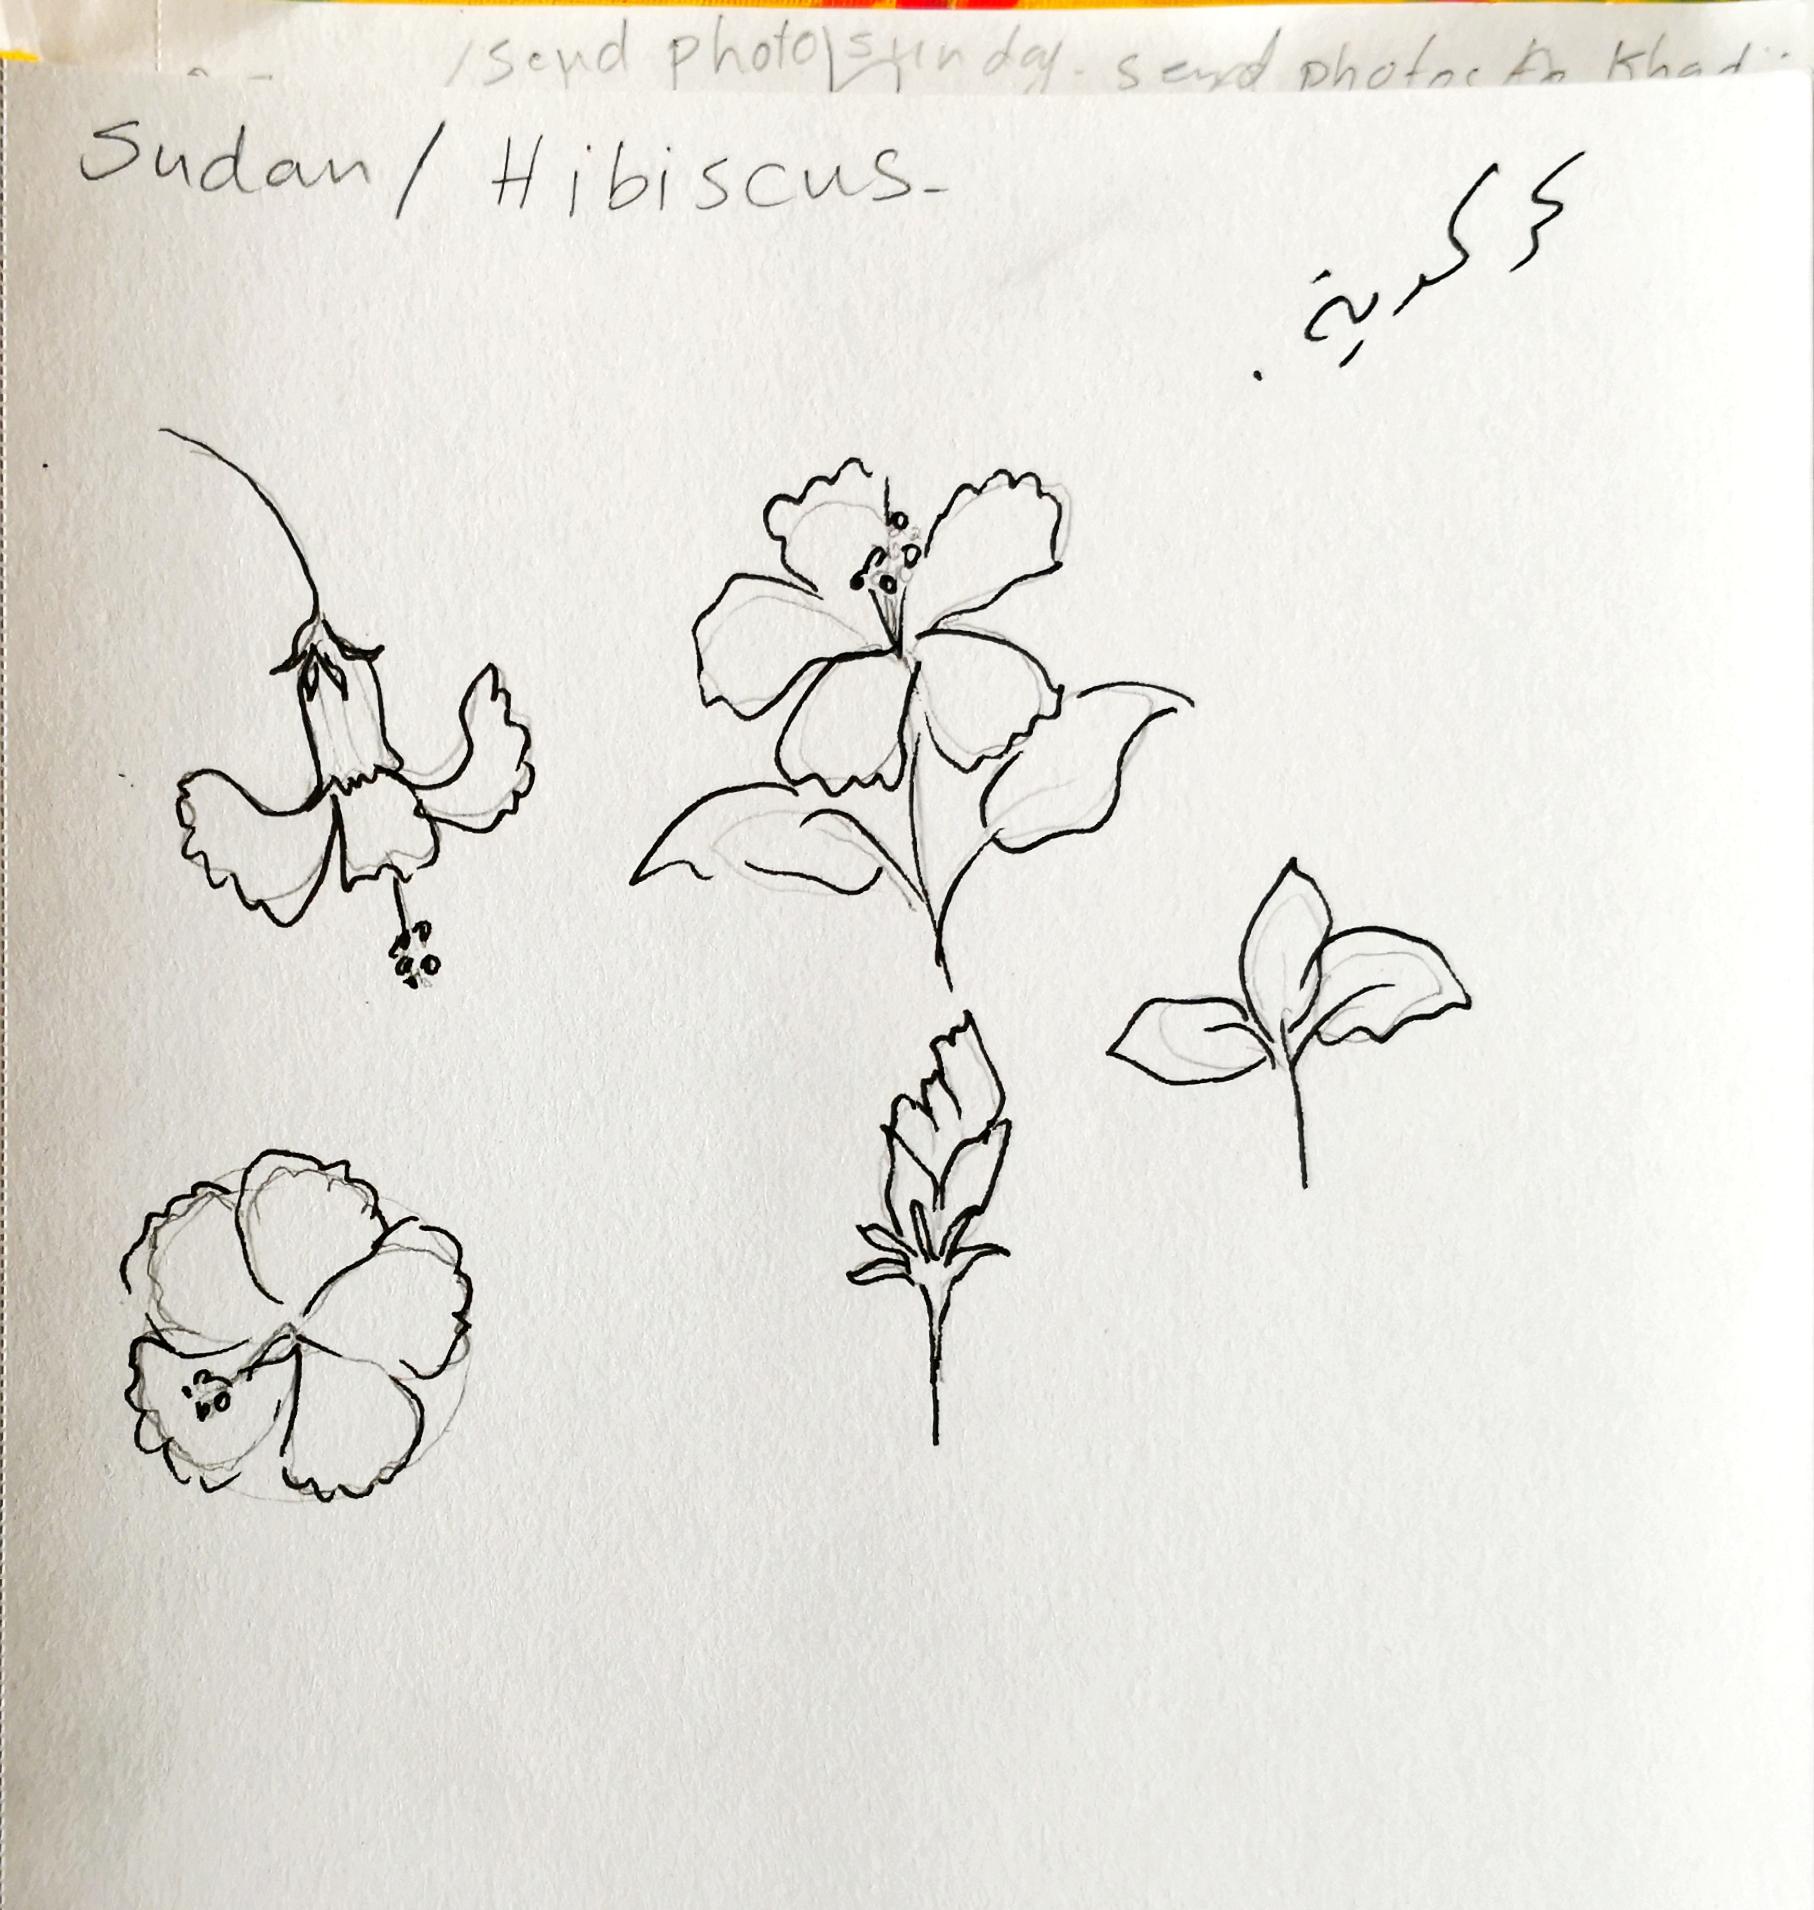 /send photo/sunday. send photos to Khad
Sudan / Hibiscus-
كركدية.